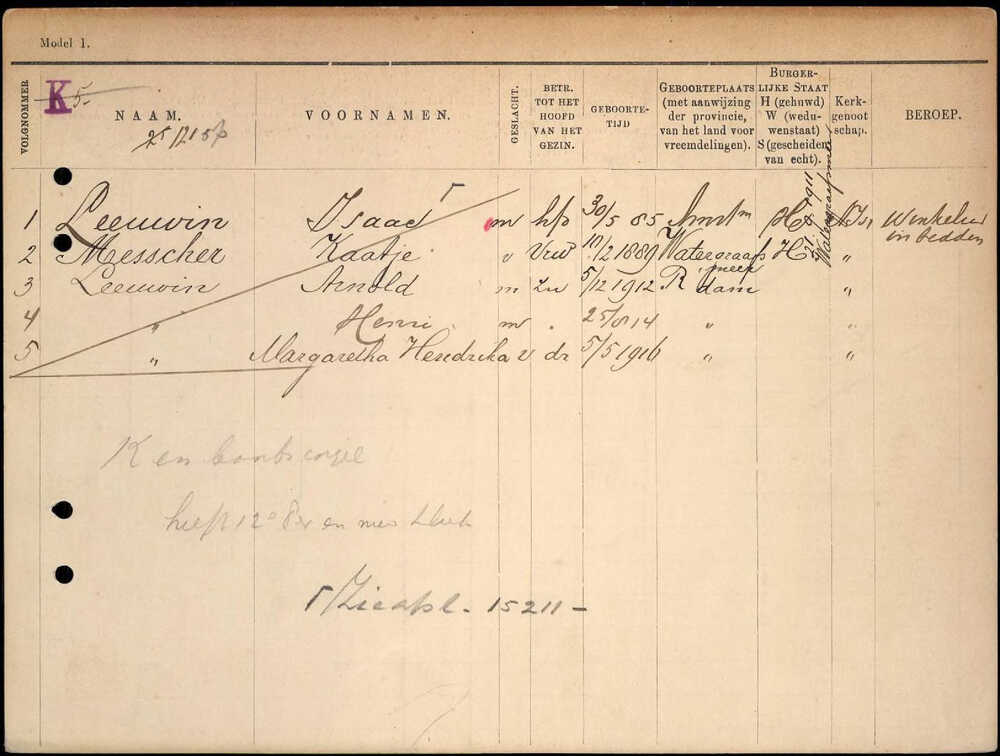 Model 1.
VOLGNOMMER
K 5-
NAAM.
VOORNAMEN.
GESLACHT.
BETR. TOT HET HOOFD VAN HET GEZIN.
GEBOORTE-TIJD
GEBOORTEPLAATS (met aanwijzing der provincie, van het land voor vreemdelingen).
BURGER-LIJKE STAAT H (gehuwd) W (wedu-wenstaat) S (gescheiden van echt).
Kerk-genoot schap.
BEROEP.
1 Leeuwin Isaac m hfd 30/5 85 Amstm H 21-9-1911 Watergraafsmeer N Isr Winkelier in bedden
2 Messcher Kaatje " Vrw 10/2 1889 Watergraafsmeer H "
3 Leeuwin Arnold m zn 5/12 1912 R'dam "
4 " Henri m . 25/8 14 " "
5 " Margaretha Hendrika v dr 5/5 1916 " "
K en
15211 -